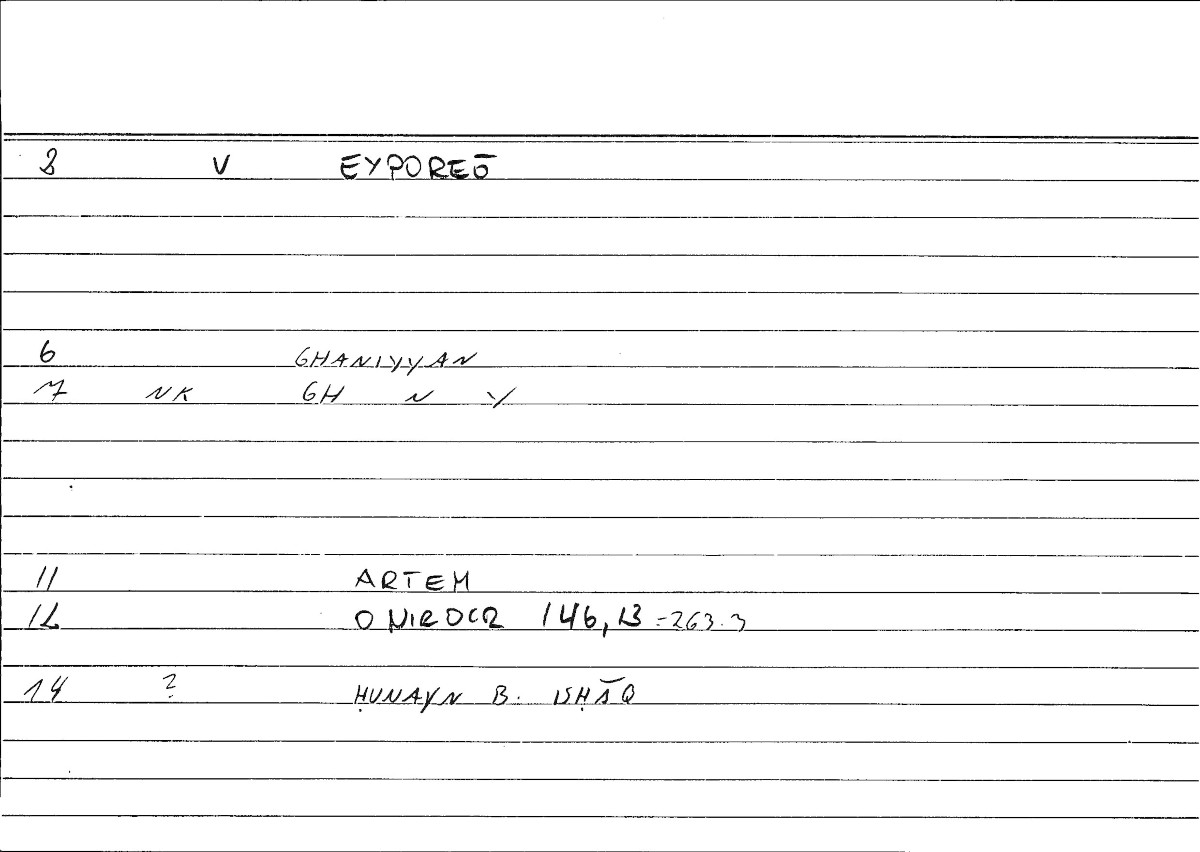 8 V EYPOREŌ
6 GHANIYYAN
7 NK GH N Y
11 ARTEM
12 ONIROCR 146,13 =263.3
14 ? ḤUNAYN B. ISḤĀQ